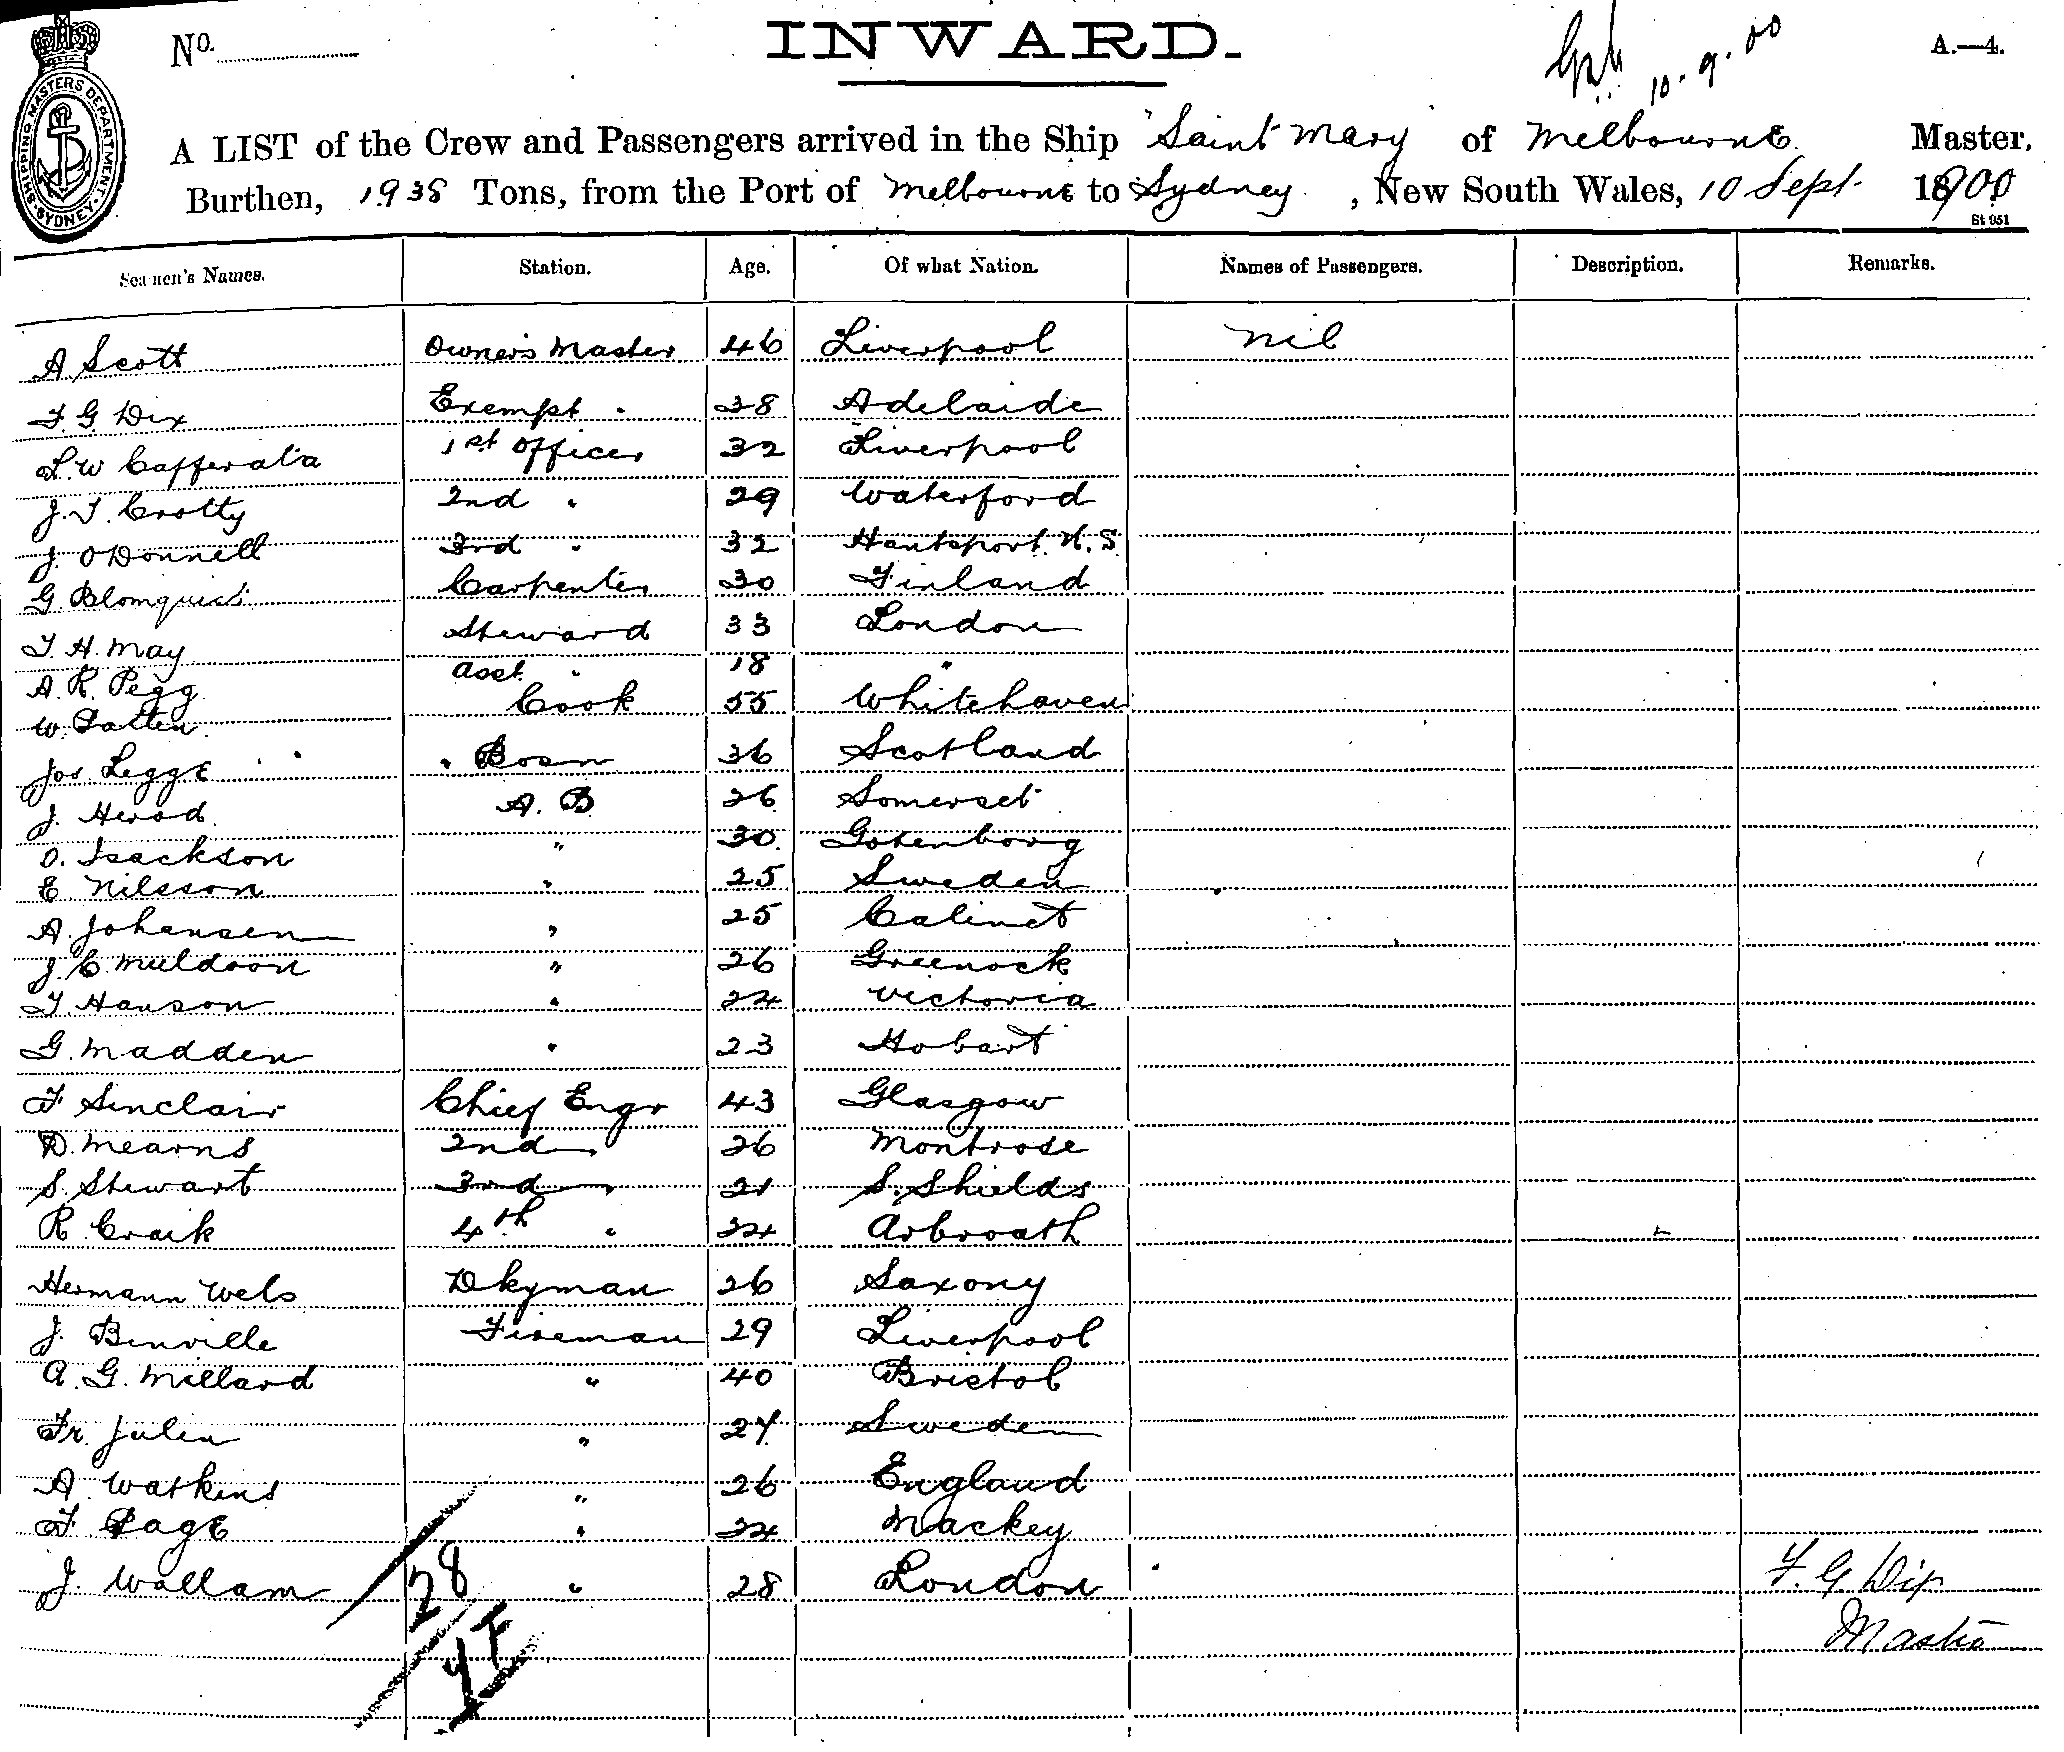 SHIPPING MASTERS DEPARTMENT. SYDNEY.
No.
INWARD.
10.9.00
A.—4.
A LIST of the Crew and Passengers arrived in the Ship "Saint Mary" of Melbourne Master.
Burthen, 1938 Tons, from the Port of Melbourne to Sydney, New South Wales, 10 Sept. 1900
St 951
Seamen's Names. Station. Age. Of what Nation. Names of Passengers. Description. Remarks.
A Scott Owners Master 46 Liverpool Nil
F G Dix Exempt . 38 Adelaide
L. W Cafferata 1st Officer 32 Liverpool
J. T. Crotty 2nd " 29 Waterford
J. O'Donnell 3rd " 32 Hantsport. N. S.
G. Blomquist Carpenter 30 Finland
T. H. May Steward 33 London
A. R. Pegg Asst. " 18 "
W. Patten Cook 55 Whitehaven
Jos Legge Bosn 36 Scotland
J. Herod. A. B 26 Somerset
O. Isackson " 30. Gotenborg
E Nilsson " 25 Sweden
A. Johansen " 25 Calinet
J. C Muldoon " 26 Greenock
T. Hanson " 24 Victoria
G. Madden " 23 Hobart
F Sinclair Chief Engr 43 Glasgow
D. Mearns 2nd " 26 Montrose
S. Stewart 3rd " 21 S. Shields
R. Craik 4th " 24 Arbroath
Hermann Wels Dkyman 26 Saxony
J. Binville Fireman 29 Liverpool
A. G. Millard " 40 Bristol
Fr. Julin " 27 Sweden
A. Watkins " 26 England
F. Page " 24 Mackey
J. Wallam " 28 London
28
F. G. Dix
Master